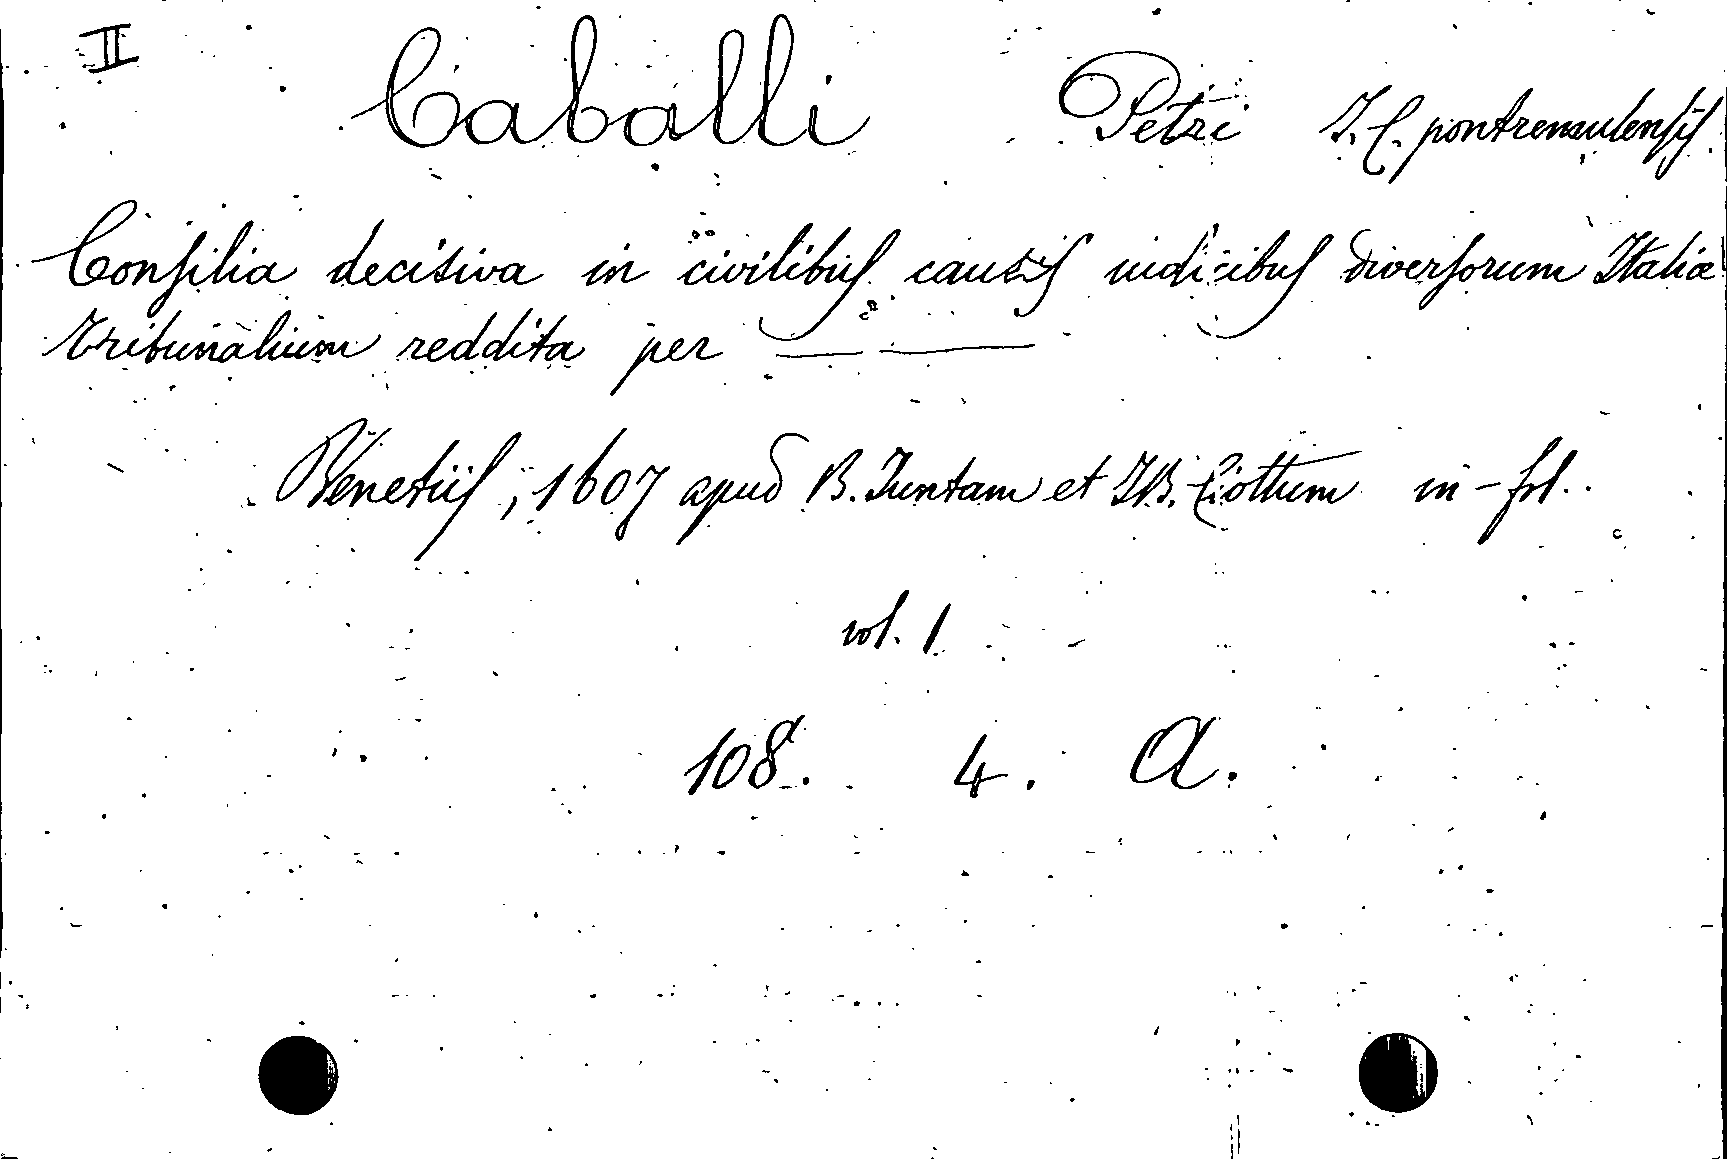 II Caballi Petri J. C. pontremulensis
Consilia decisiva in civilibus causis iudicibus diversorum Italiæ
tribunalium reddita per — —
Venetiis, 1607 apud B. Juntam et J.B. Ciottum in-fol.
vol. 1
108. 4. A.